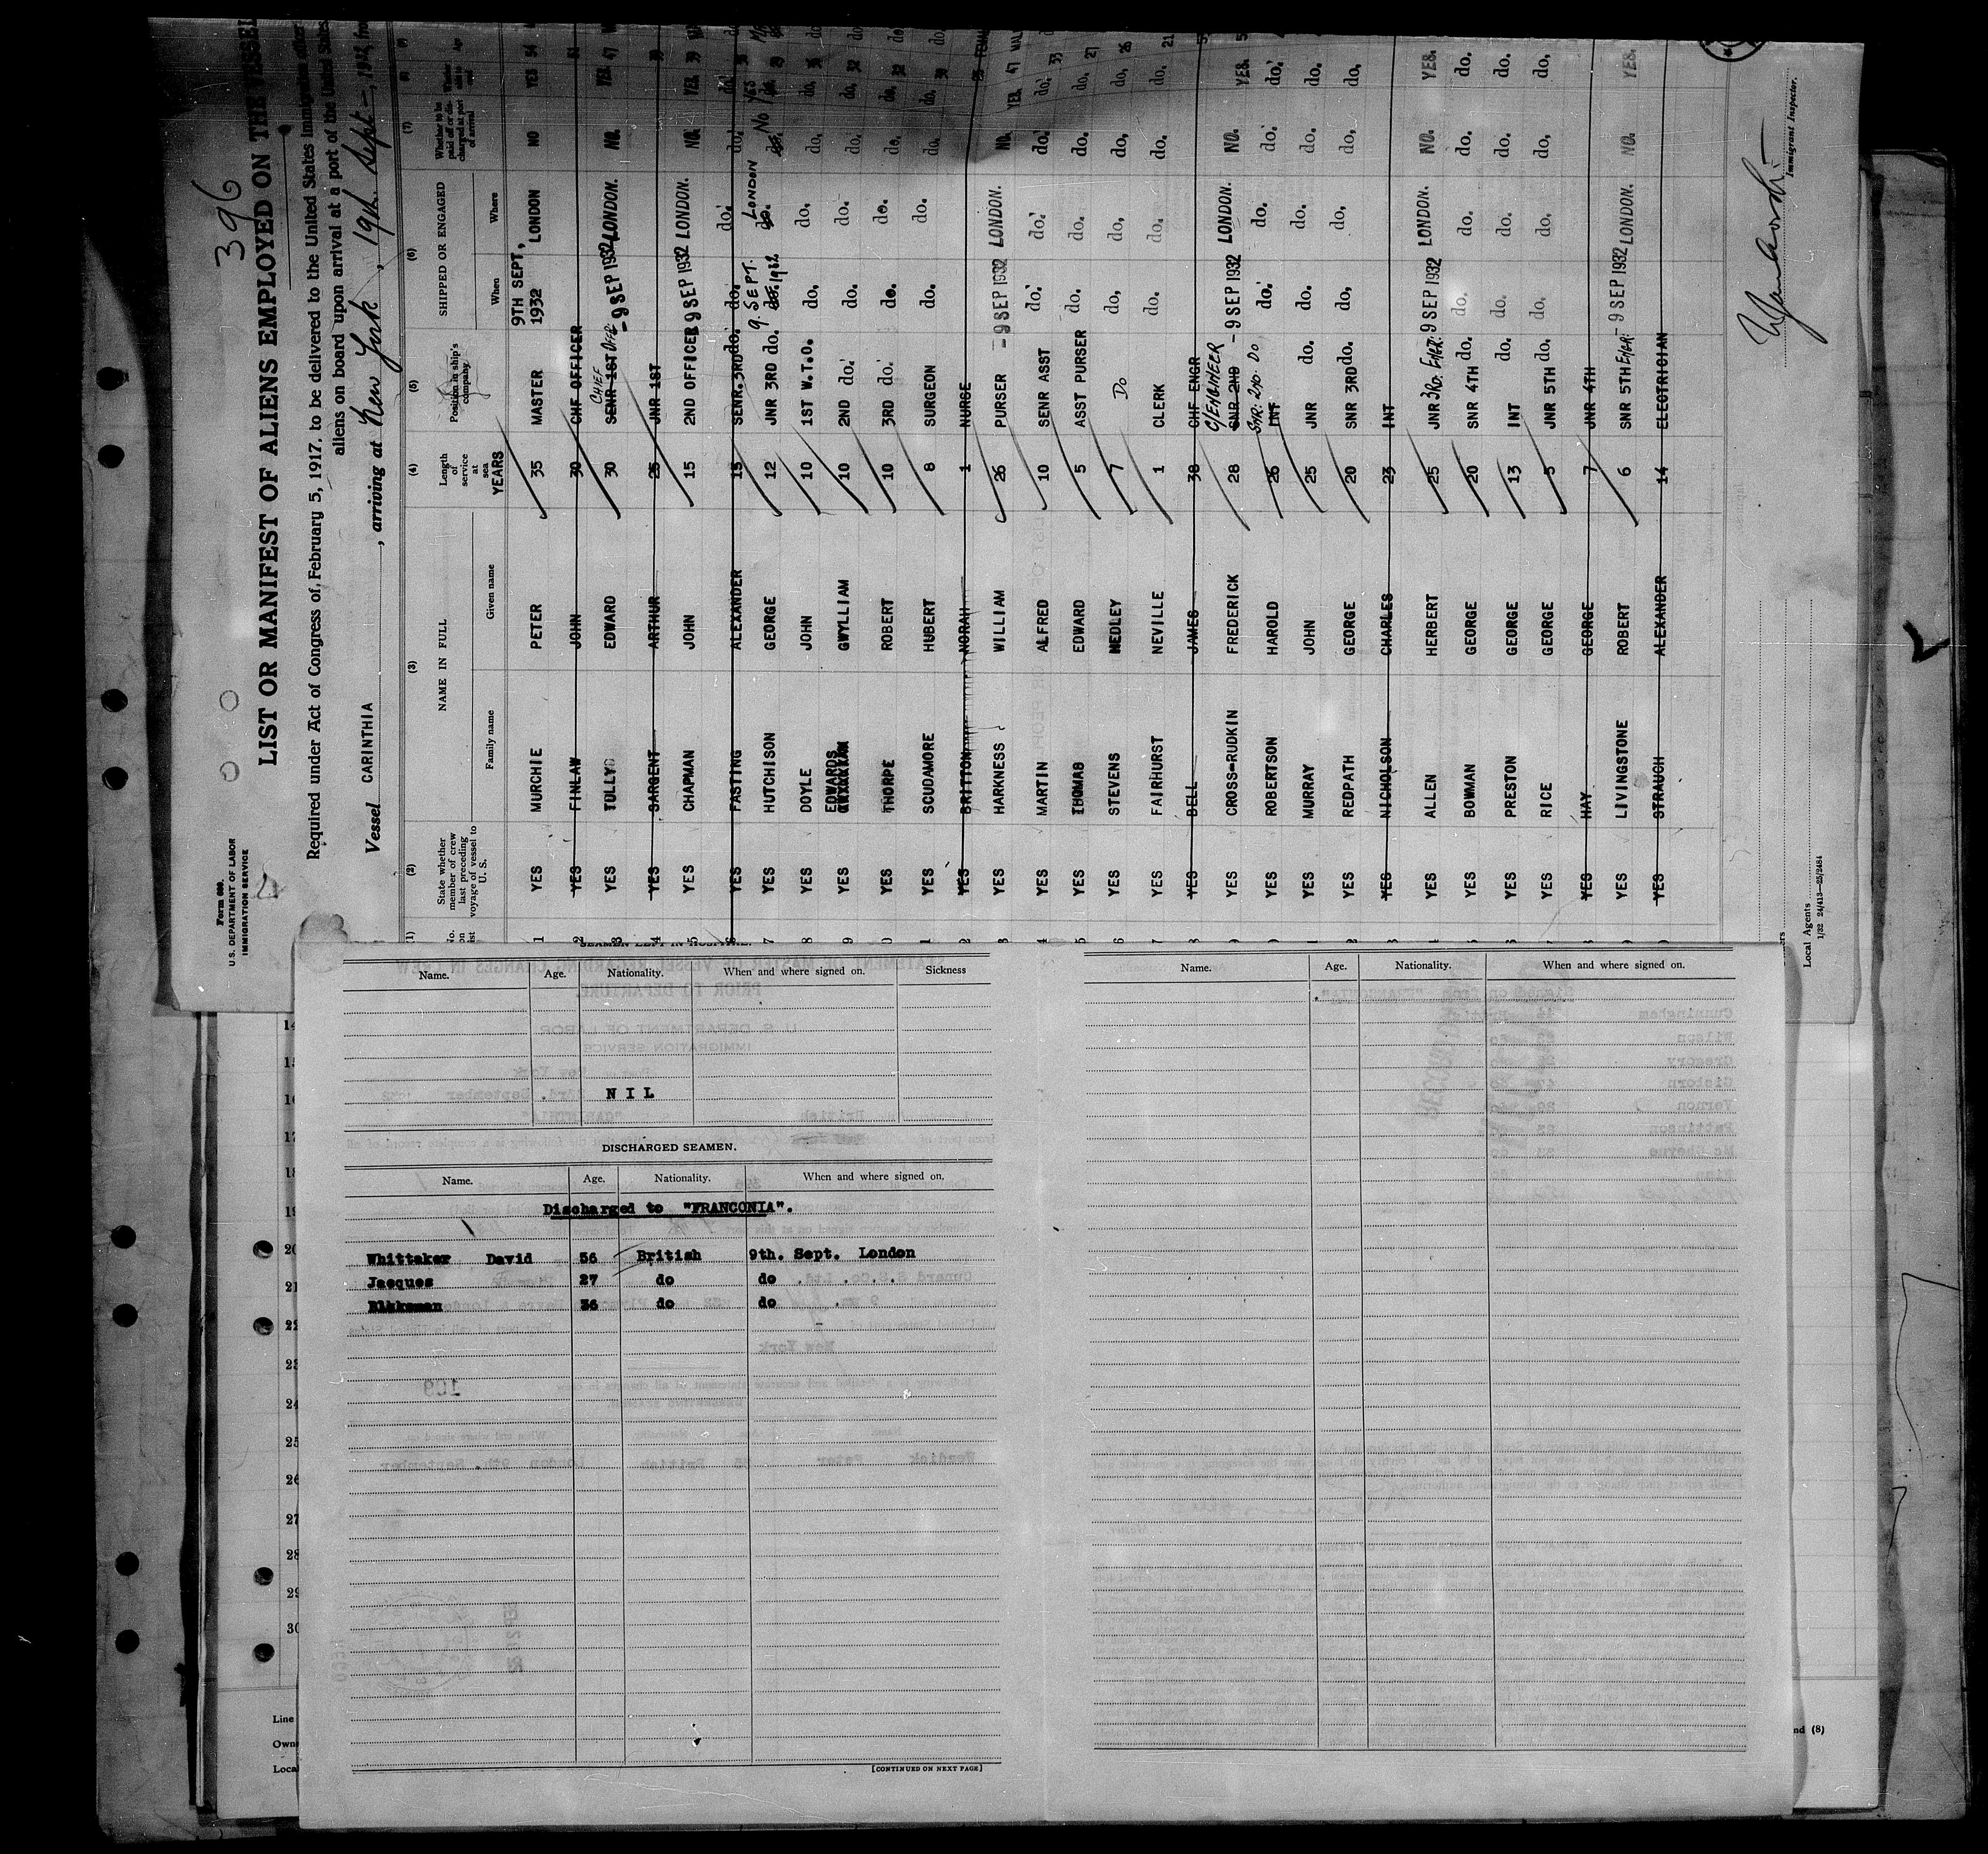 396
Form 689.
U.S. DEPARTMENT OF LABOR
IMMIGRATION SERVICE
LIST OR MANIFEST OF ALIENS EMPLOYED ON THE VESSEL
Required under Act of Congress of February 5, 1917, to be delivered to the United States immigration officer
aliens on board upon arrival at a port of the United States
Vessel CARINTHIA, arriving at New York, 19th. Sept-, 1932, from
(1) (2) (3) (4) (5) (6) (7) (8) (9)
State whether member of crew last preceding voyage of vessel to U. S.
NAME IN FULL
Family name Given name
Length of service at sea YEARS
Position in ship's company
SHIPPED OR ENGAGED
When Where
Whether to be paid off or discharged at port of arrival
Age
1 YES MURCHIE PETER 35 MASTER 9TH SEPT, 1932 LONDON NO YES 54
2 YES FINLAW JOHN 30 CHF OFFICER 51
3 YES TULLY EDWARD 30 SENR 1ST CHIEF OFFR -9 SEP 1932 LONDON. NO. YES. 47
4 YES SARGENT ARTHUR 25 JNR 1ST 39
5 YES CHAPMAN JOHN 15 2ND OFFICER 9 SEP 1932 LONDON. NO. YES. 39
6 YES FASTING ALEXANDER 15 SENR. 3RD do. do. do. do. do. 38
7 YES HUTCHISON GEORGE 12 JNR 3RD do. do. 9. SEPT. 1932 do. LONDON do. No do. YES 29
8 YES DOYLE JOHN 10 1ST W.T.O. do. do. do. do. 36
9 YES EDWARDS GWYLLIAM 10 2ND do. do. do. do. do. 32
0 YES THORPE ROBERT 10 3RD do. do. do. do. do. 32
1 YES SCUDAMORE HUBERT 8 SURGEON do. do. do. do. 38
2 YES BRITTON NORAH 1 NURSE
3 YES HARKNESS WILLIAM 26 PURSER -9 SEP 1932 LONDON. NO. YES. 47
4 YES MARTIN ALFRED 10 SENR ASST do. do. do. do. 33
5 YES THOMAS EDWARD 5 ASST PURSER do. do. do. do. 27
6 YES STEVENS MEDLEY 7 Do do, do, do, do, 26
7 YES FAIRHURST NEVILLE 1 CLERK do. do. do. do. 21
8 YES BELL JAMES 38 CHF ENGR
9 YES CROSS-RUDKIN FREDERICK 28 SNR 2ND C/ENGINEER -9 SEP 1932 LONDON. NO. YES.
0 YES ROBERTSON HAROLD 26 INT SNR: 2ND. DO do. do. do. do.
1 YES MURRAY JOHN 25 JNR do. do. do. do. do.
2 YES REDPATH GEORGE 20 SNR 3RD do. do, do, do, do,
3 YES NICHOLSON CHARLES 23 INT
4 YES ALLEN HERBERT 25 JNR 3RD. ENGR: -9 SEP 1932 LONDON. NO. YES.
5 YES BOWMAN GEORGE 20 SNR 4TH do. do. do. do. do.
6 YES PRESTON GEORGE 13 INT do. do. do. do. do.
7 YES RICE GEORGE 5 JNR 5TH do. do. do. do, do,
8 YES HAY GEORGE 7 JNR 4TH
9 YES LIVINGSTONE ROBERT 6 SNR 5TH ENGR -9 SEP 1932 LONDON. NO. YES.
0 YES STRAUCH ALEXANDER 14 ELECTRICIAN
Immigrant Inspector.
Local Agents
1/32 24/413—25/2484
Name. Age. Nationality. When and where signed on. Sickness
NIL
DISCHARGED SEAMEN.
Name. Age. Nationality. When and where signed on.
Discharged to "FRANCONIA".
Whittaker David 56 British 9th. Sept. London
Jacques 27 do do
36 do do
[CONTINUED ON NEXT PAGE]
Name. Age. Nationality. When and where signed on.
14
15
16
17
18
19
20
21
22
23
24
25
26
27
28
29
30
Line
Own
Local
nd (8)